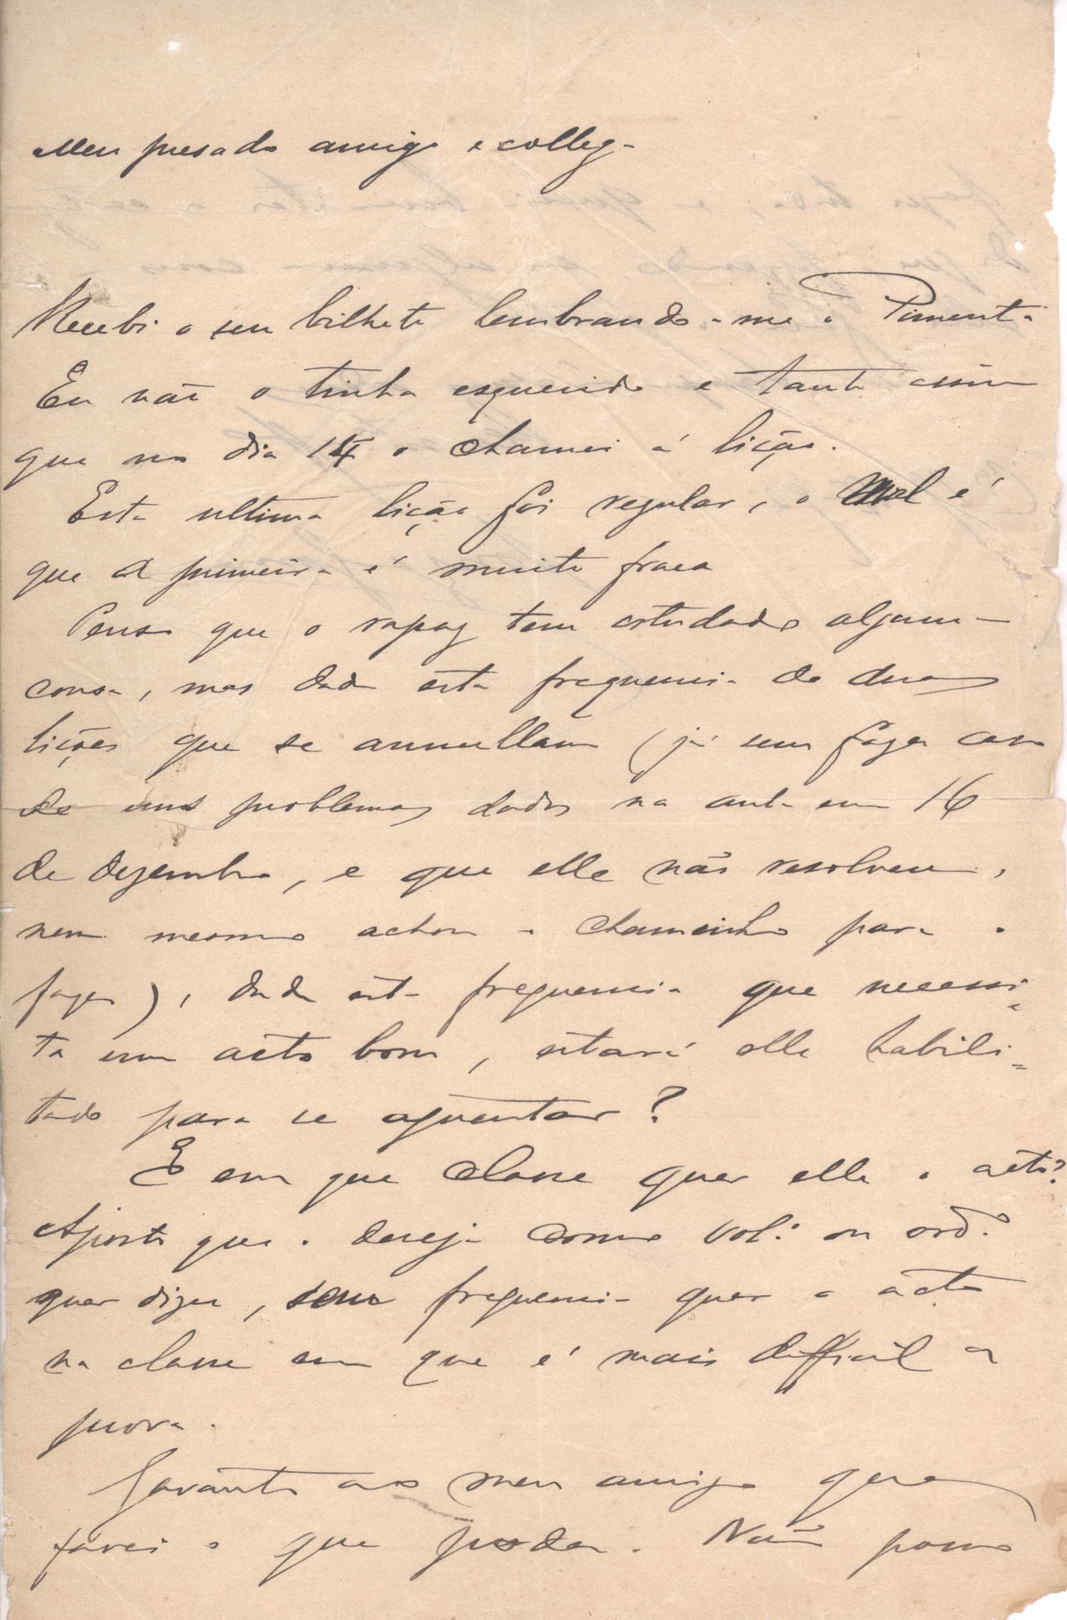 Meu presado amigo e collega
Recebi o seu bilhete lembrando-me o Pimenta
Eu não o tinha esquecido e tanto assim
que no dia 14 o chamei á lição.
Esta ultima lição foi regular, o mal é
que a primeira é muito fraca
Penso que o rapaz tem estudado alguma
cousa, mas dada esta frequencia de duas
lições que se annullam (já sem fazer caso
de uns problemas dados na aula em 16
de dezembro, e que elle não resolveu,
nem mesmo achou o chaminho para o
fazer), dada esta frequencia que necessi=
ta um acto bom, estará elle habili=
tado para se aguentar?
E em que classe quer elle o acto?
Aposto que o deseja como vol.o ou ord.o
quer dizer, sem frequencia quer o acto
na classe em que é mais difficil a
prova.
Garanto ao meu amigo que
farei o que poder. Não posso